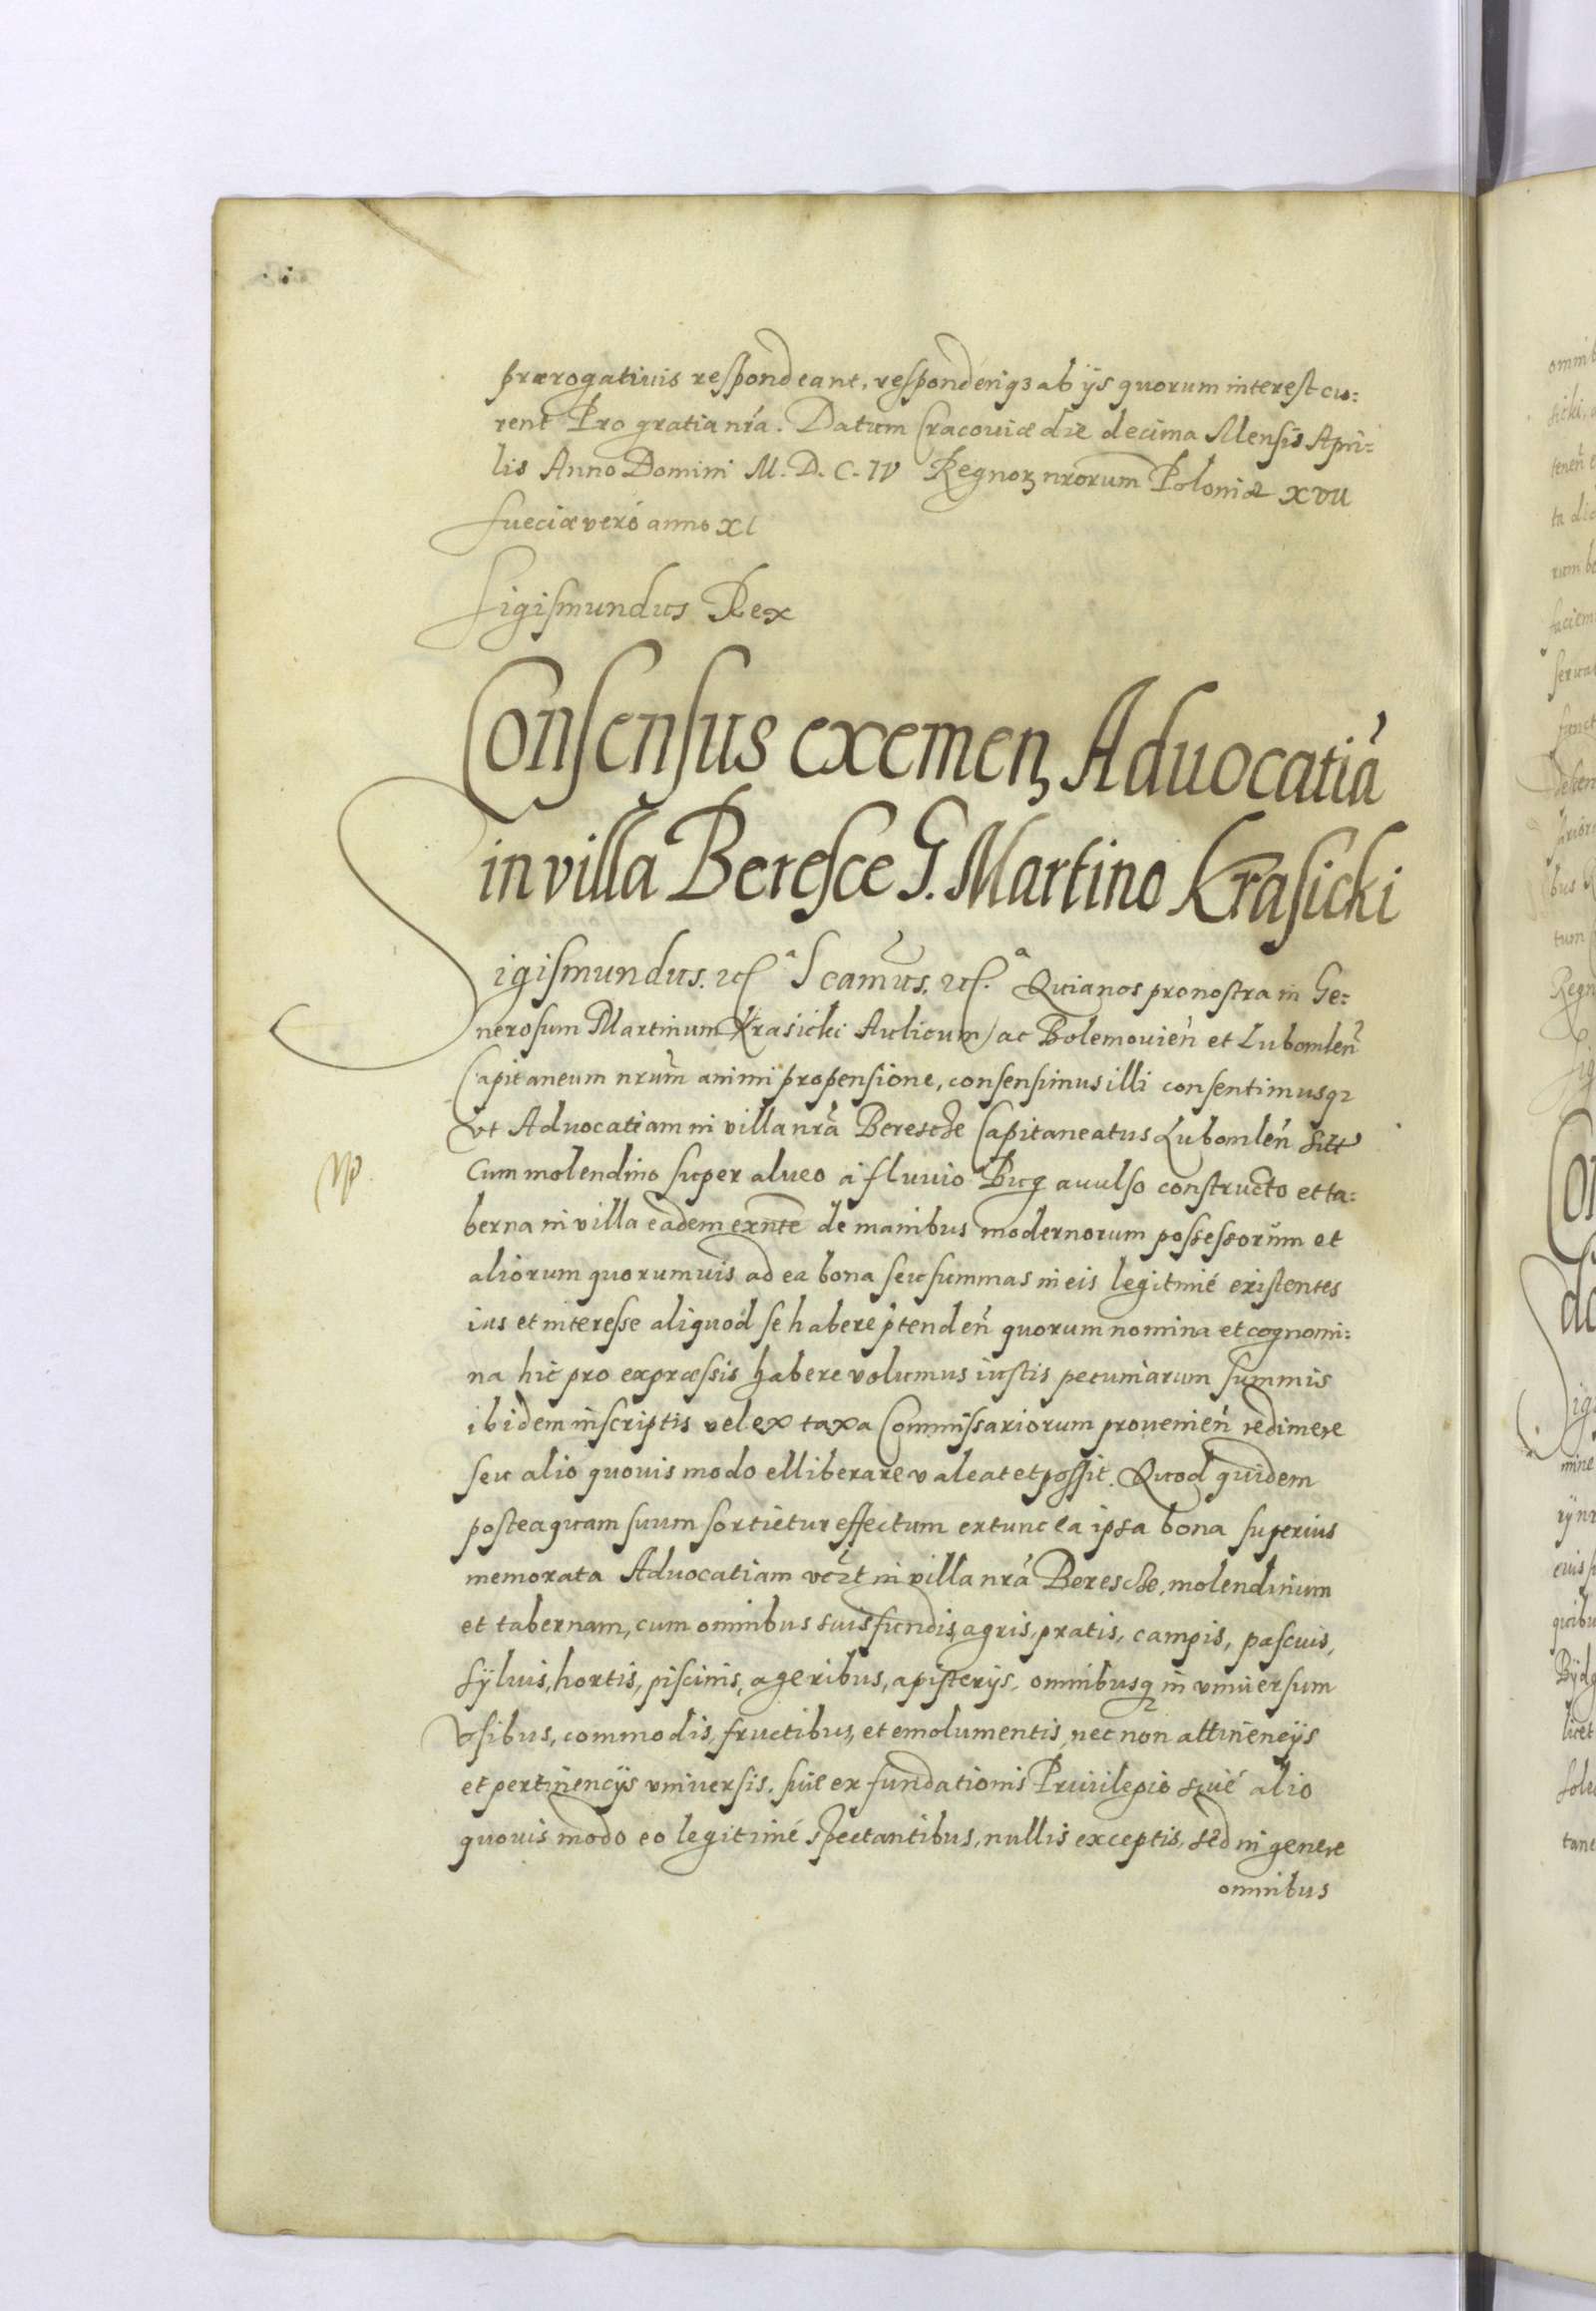 prærogatiuis respondeant, responderiq3 ab ijs quorum interest cu:
rent Pro gratia nrã. Datum Cracouiæ die decima Mensis Apri:
lis Anno Domini M. D. C. IV Regnoꝝ nrorum Poloniæ XVII
Sueciæ veró anno XI
Sigismundus Rex
Consensus exemen̄ Aduocatiã
in villa Beresce G. Martino Krasicki
Sigismundus. etc̃ Scamus. etc̃. Quia nos pro nostra in Ge:
nerosum Martinum Krasicki Aulicum, ac Bolemouien̄ et Lubomlen̄
Capitaneum nrum animi propensione, consensimus illi consentimusq3
vt Aduocatiam in villa nrã Beresche Capitaneatus Lubomlen̄ sitt
Cum molendino super alueo á fluuio Bug auulso constructo et ta:
berna in villa eadem exnte de manibus modernorum possessorum et
aliorum quorumuis ad ea bona seu summas in eis legitimé existentes
ius et interesse aliquod se habere ptenden̄ quorum nomina et cognomi:
na hic pro expræssis habere volumus iustis pecuniarum summis
ibidem inscriptis vel ex taxa Commissariorum prouenien̄ redimere
seu alio quouis modo elliberare valeat et possit. Quod quidem
posteaquam suum sortietur effectum extunc ea ipsa bona superius
memorata Aduocatiam vczt in villa nrã Beresche, molendinum
et tabernam, cum omnibus suis fundis, agris, pratis, campis, pascuis,
syluis, hortis, piscinis, ageribus, apisterijs, omnibusq3 in vniuersum
vsibus, commodis, fructibus, et emolumentis, nec non attinencijs
et pertinencijs vniuersis. siue ex fundationis Priuilegio siué alio
quouis modo eo legitimé spectantibus, nullis exceptis, sed in genere
omnibus